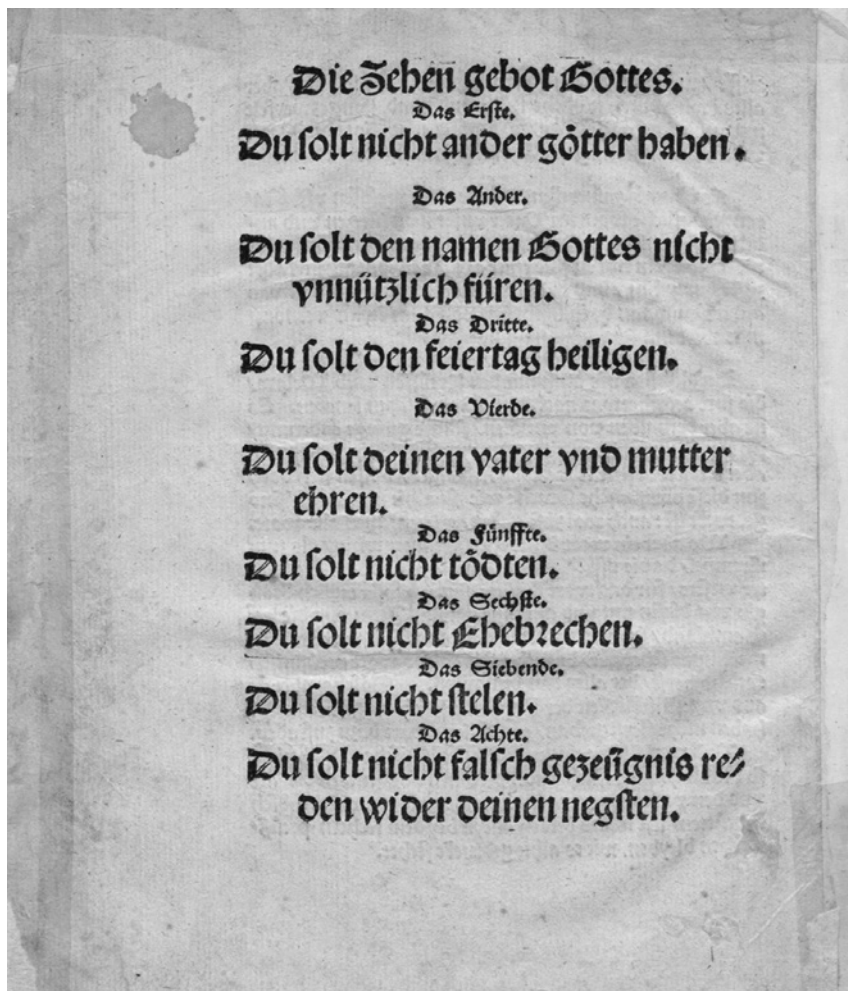 Die Zehen gebot Gottes.
Das Erſte.
Du ſolt nicht ander götter haben.
Das Ander.
Du ſolt den namen Gottes nicht
vnnützlich füren.
Das Dritte.
Du ſolt den feiertag heiligen.
Das Vierde.
Du ſolt deinen vater vnd mutter
ehren.
Das Fünffte.
Du ſolt nicht tödten.
Das Sechſte.
Du ſolt nicht Ehebrechen.
Das Siebende.
Du ſolt nicht ſtelen.
Das Achte.
Du ſolt nicht falſch gezeügnis re⸗
den wider deinen negſten.